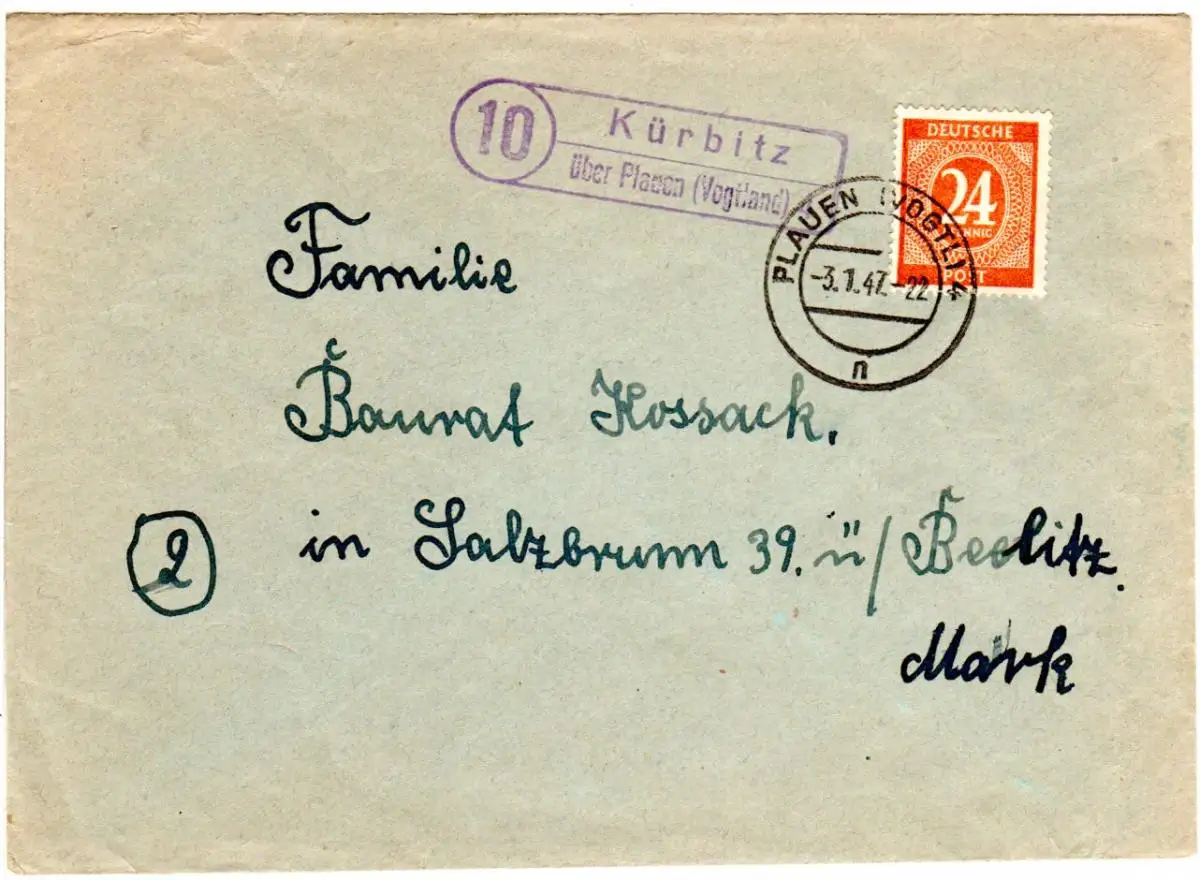 10
Kürbitz
über Plauen (Vogtland)
DEUTSCHE
24
PFENNIG
POST
PLAUEN (VOGTL) 4
-3.1.47.-22
*
n
Familie
Baurat Kossack.
2
in Salzbrunn 39. ü/ Beelitz.
Mark